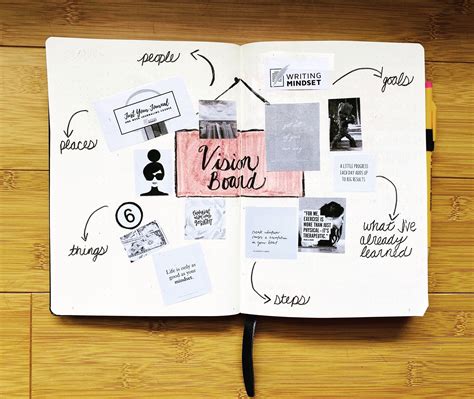 people
WRITING
MINDSET
goals
Just Your Journal
places
Vision
Board
A LITTLE PROGRESS
EACH DAY ADDS UP
TO BIG RESULTS
6
"FOR ME,
EXERCISE IS
MORE THAN
JUST PHYSICAL
- IT'S
THERAPEUTIC."
what I've
already
learned
things
Life is only as
good as your
mindset.
steps